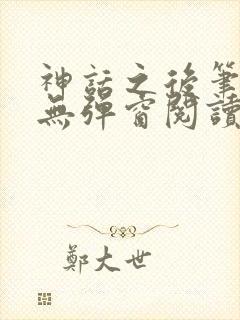 神話之後筆
無彈窗閱讀
鄭大世